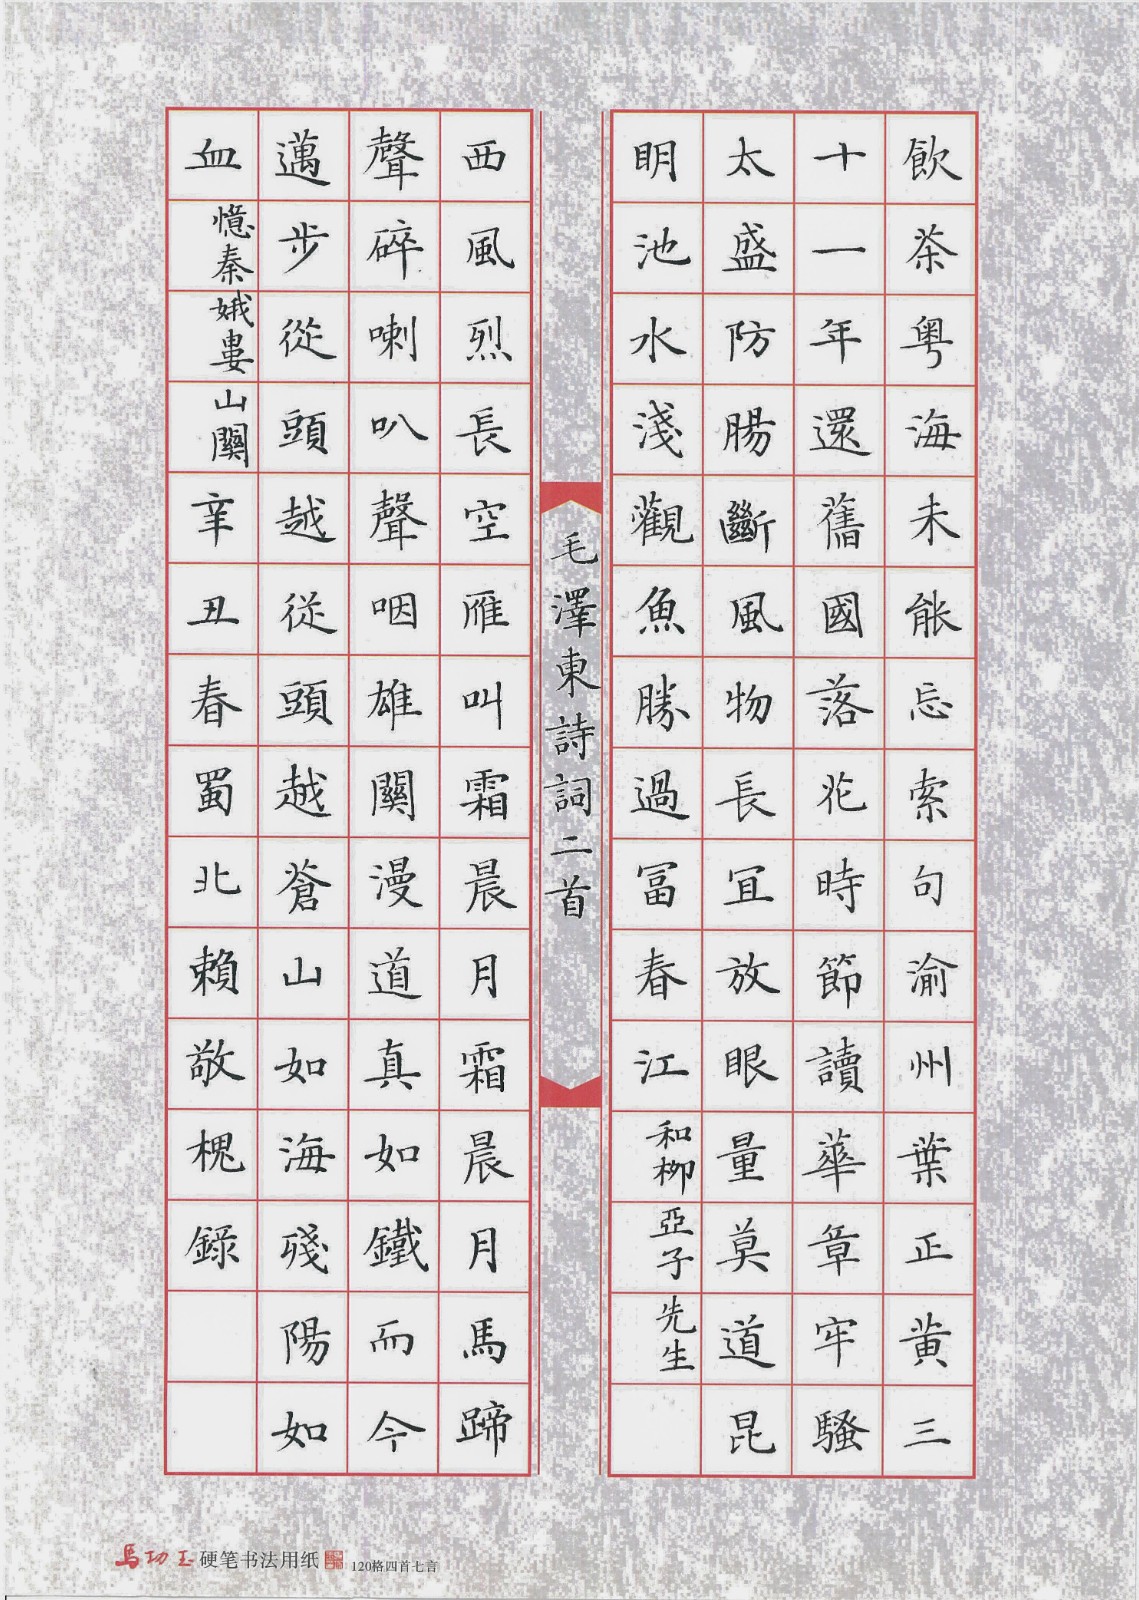 飲茶粵海未能忘索句渝州葉正黃三
十一年還舊國落花時節讀華章牢騷
太盛防腸斷風物長宜放眼量莫道昆
明池水淺觀魚勝過冨春江和柳亞子先生
毛澤東詩詞二首
西風烈長空雁叫霜晨月霜晨月馬蹄
聲碎喇叭聲咽雄關漫道真如鐵而今
邁步從頭越從頭越蒼山如海殘陽如
血憶秦娥婁山關辛丑春蜀北賴敬槐錄
馬功玉硬笔书法用纸 120格四首七言